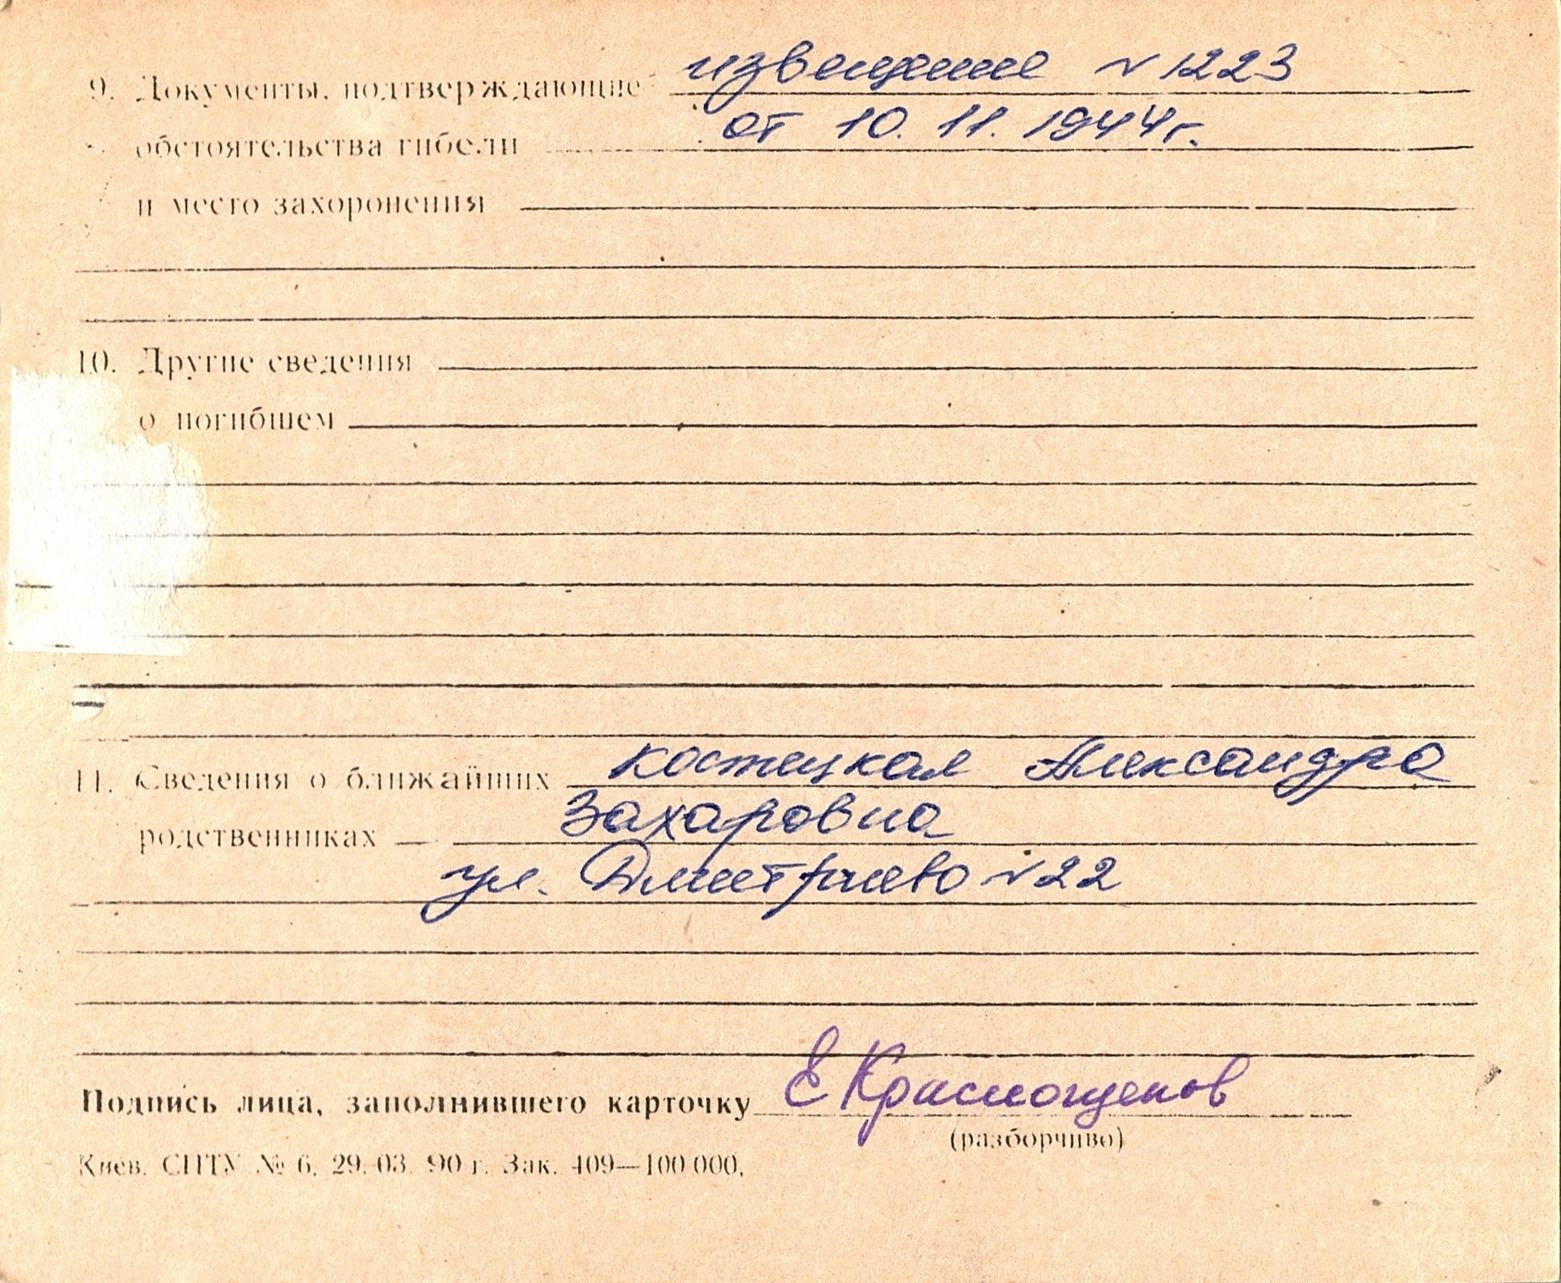 9. Документы, подтверждающие извещение № 1223
обстоятельства гибели от 10.11.1944г.
и место захоронения
10. Другие сведения
о погибшем
11. Сведения о ближайших Костецкая Александра
родственниках Захаровна
ул. Дмитриева № 22
Подпись лица, заполнившего карточку Е Краснощеков
(разборчиво)
Киев. СПТУ № 6. 29. 03. 90 г. Зак. 409—100 000.